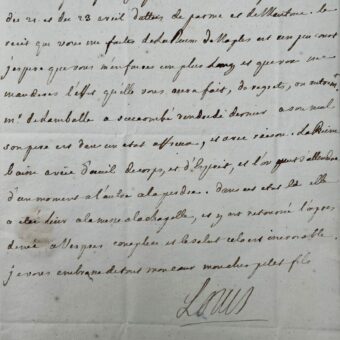 des 21. et du 23 avril dattées de parme et de Mantoue. le
recit que vous me faites de la Reine de Naples est un peu court
j'espere que vous m'en fairés un plus long et que vous me
manderés l'effet qu'elle vous aura fait,
Mr de Lamballe a succombé vendredi dernier a son mal
son pere est dans un estat affreux, et avec raison. La Reine
baisse a vüe d'oeil de corps, et d'esprit, et l'on peut s'attendre
d'un moment a l'autre a la perdre. dans cet estat là elle
a été hier a la messe a la chapelle, et y est retournée l'apres
dinée a Vespres complies et le salut cela est incroiable.
je vous embrasse de tout mon coeur mon cher petit fils
Louis